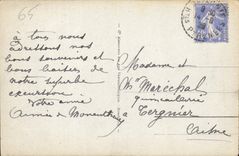 65
à tous nous
adressons nos
bons souvenirs et
bons baisers, de
notre superbe
excursion.
Votre amie
Aimée de
Madame et
Mr Maréchal
quincaillerie
à Tergnier
Aisne